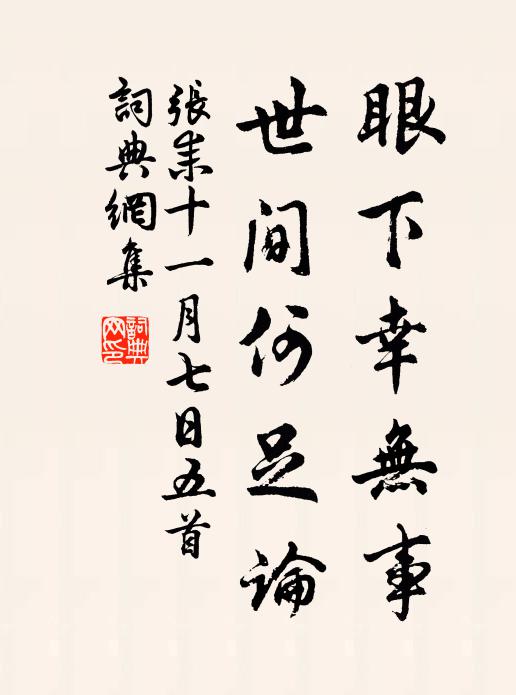 眼下幸無事
世間何足論
張耒十一月七日五首
詞典網集
詞典
网印